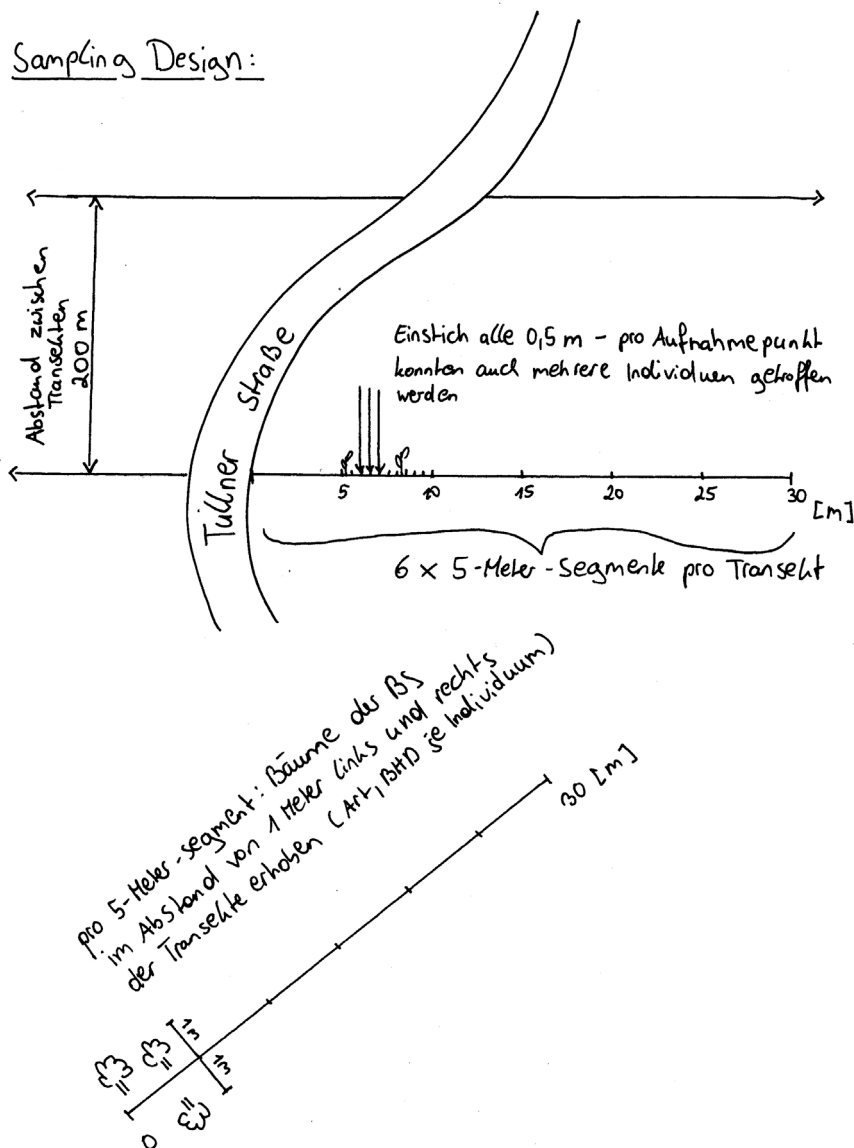 Sampling Design:
Abstand zwischen
Transekten
200 m
Tullner Straße
Einstich alle 0,5 m - pro Aufnahmepunkt
konnten auch mehrere Individuen getroffen
werden
5 10 15 20 25 30 [m]
6 x 5-Meter-Segmente pro Transekt
pro 5-Meter-Segment: Bäume der BS
im Abstand von 1 Meter links und rechts
der Transekte erhoben (Art, BHD je Individuum)
30 [m]
1m
1m
0